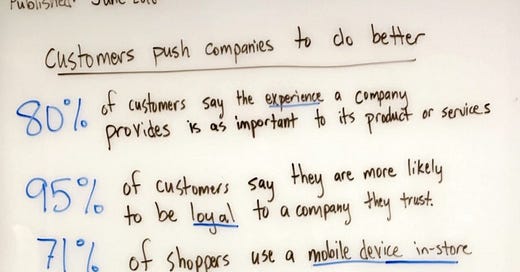 Published: June
Customers push companies to do better
80% of customers say the experience a company
provides is as important to its product or services
95% of customers say they are more likely
to be loyal to a company they trust.
71% of shoppers use a mobile device in-store